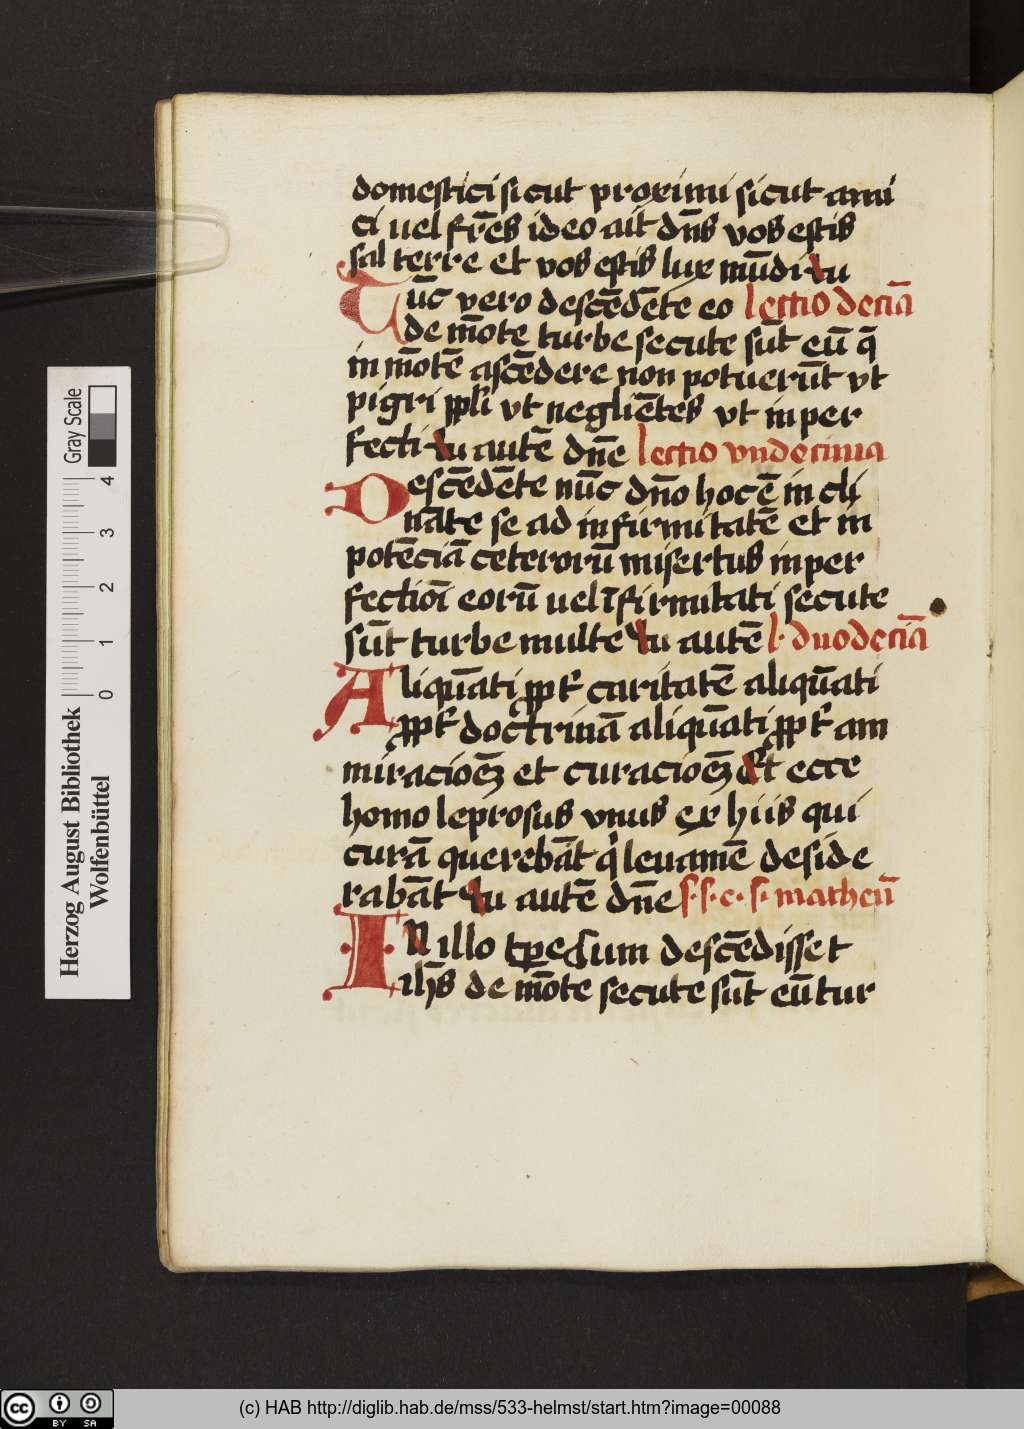 domestici sicut proximi sicut ami
ci uel fr̄es ideo ait dn̄s vos estis
sal terre et vos estis lux mūdi tu
Tūc vero descēdēte eo lectio deciā
de mōte turbe secute sūt eū q̄
in mōtē ascēdere non potuerūt vt
pigri vt neglientes vt in per
fecti tu autē dn̄e lectio vndecima
Descēdēte nūc dn̄o hoc ē in cli
nāte se ad infirmitatē et in
potēciā ceterorū misertus in per
fectiōi eorū uel īfirmitati secute
sūt turbe multe tu autē l· duodeciā
Aliquāti caritatē aliquāti
doctrinā aliquāti am
miracioēȝ et curacioēȝ Et ecce
homo leprosus vnus ex hiis qui
curā querebāt q leuamē deside
rabāt tu autē dn̄e s·s·e·s· matheū
IN illo tp̄e Cum descēdisset
ih̄s de mōte secute sūt eū tur
Herzog August Bibliothek
Wolfenbüttel
Gray Scale
0 1 2 3 4
cc BY SA
(c) HAB http://diglib.hab.de/mss/533-helmst/start.htm?image=00088